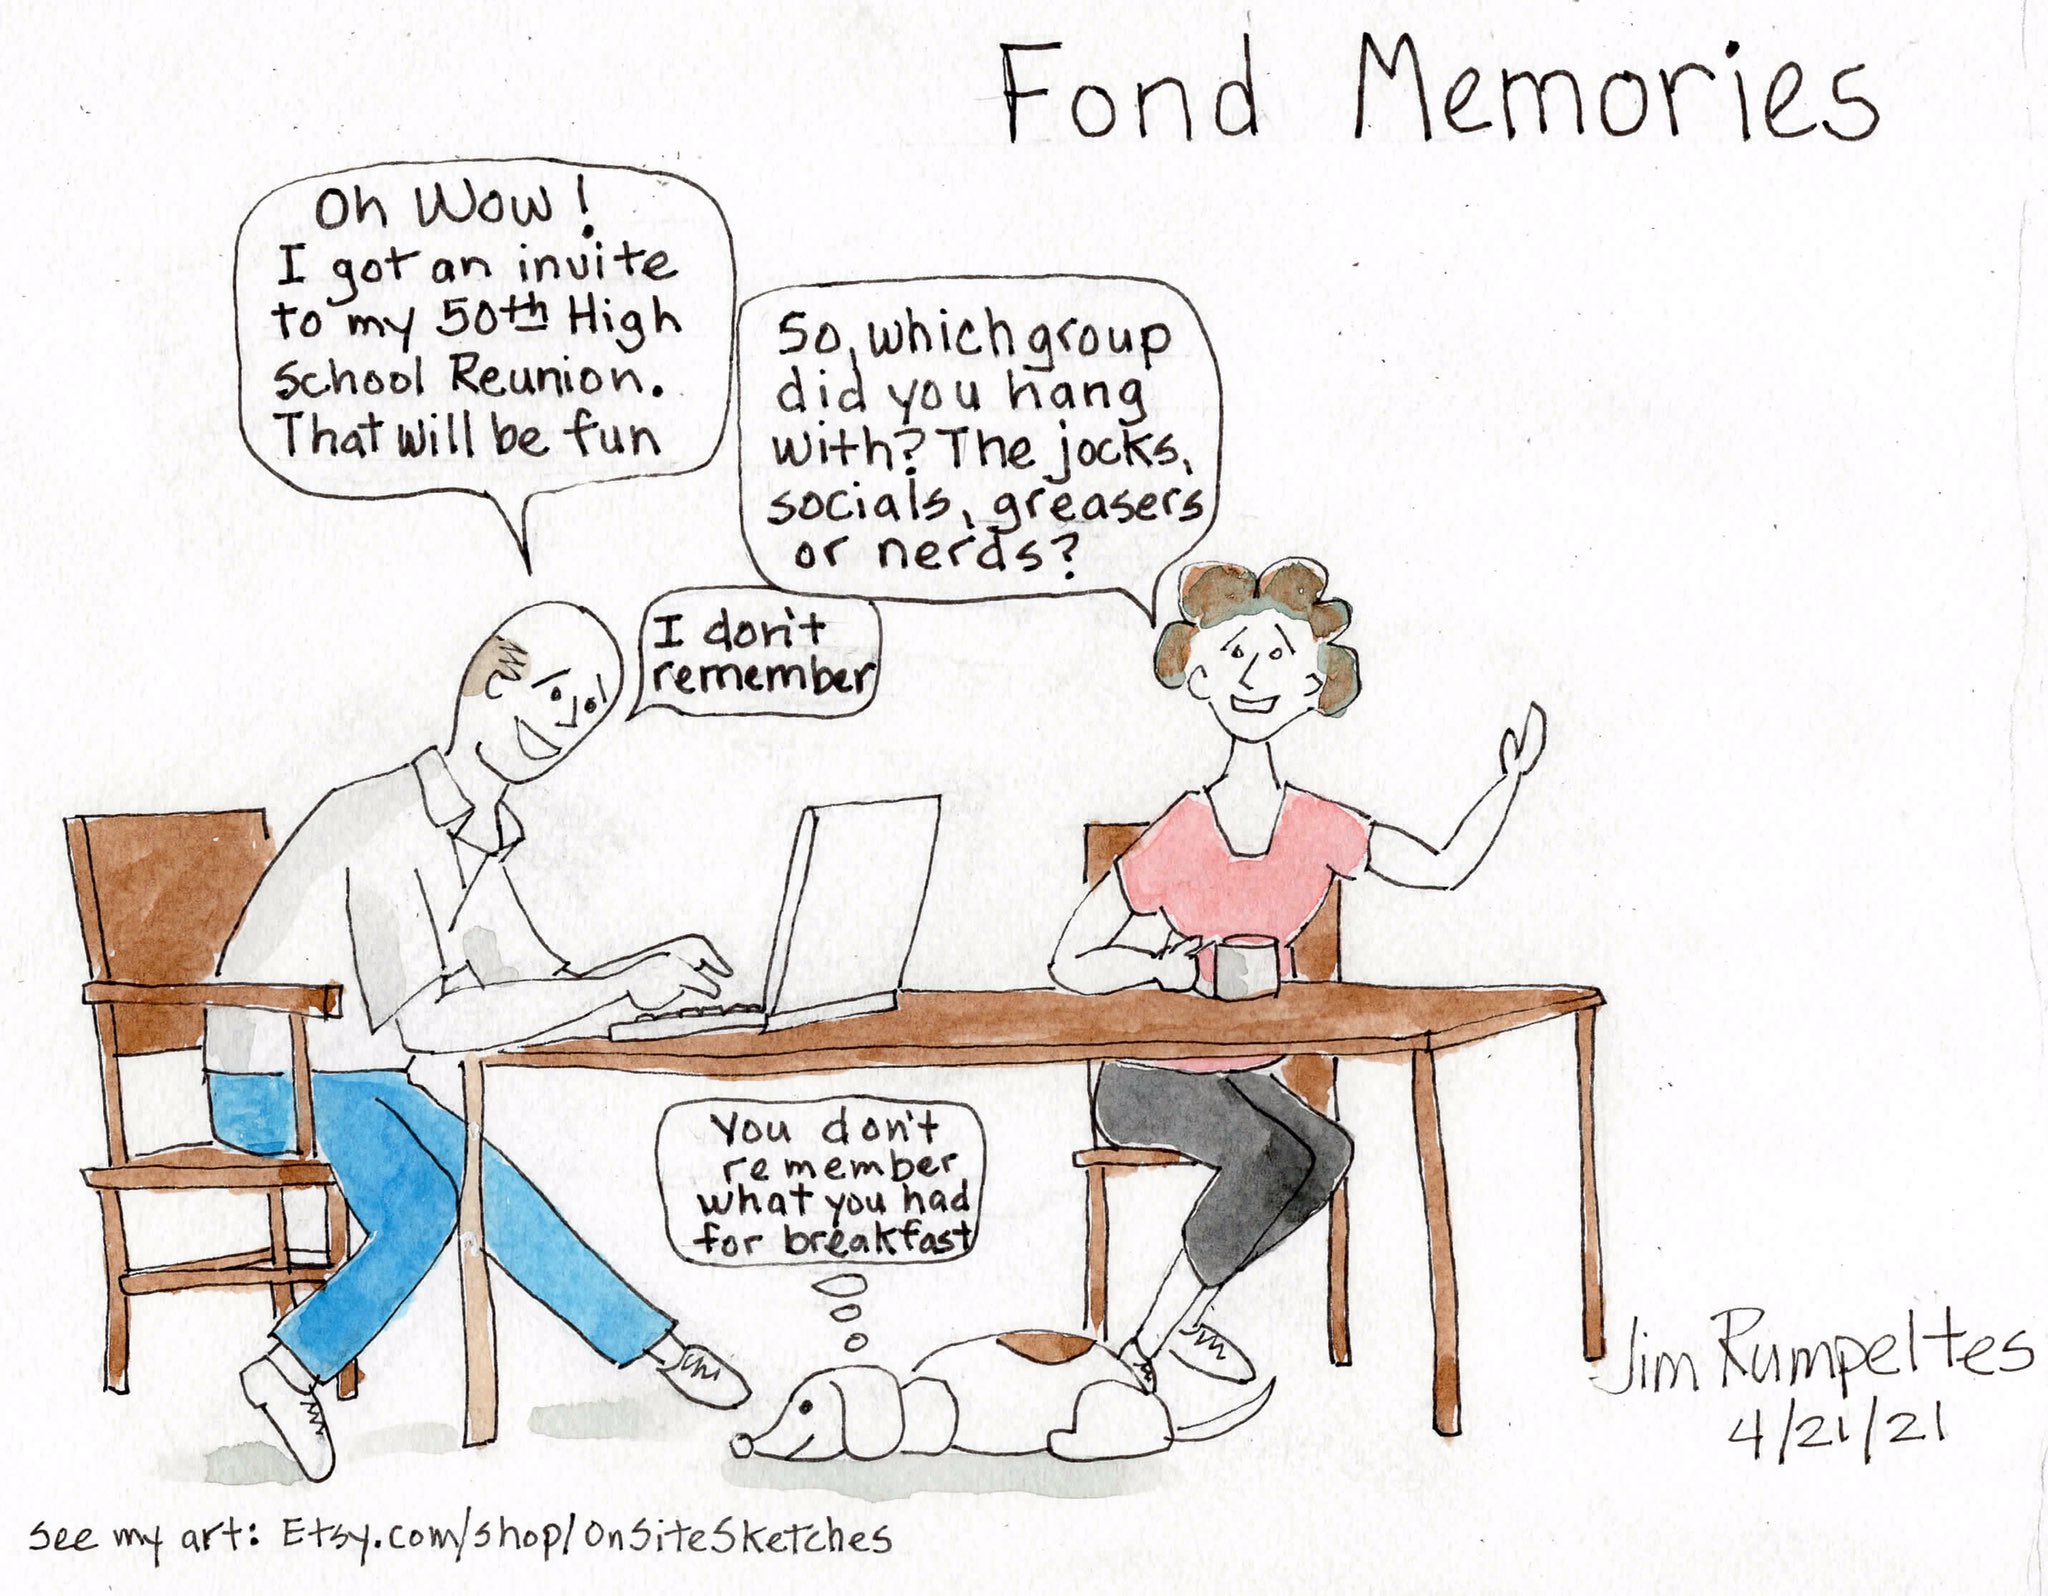 Fond Memories
Oh Wow!
I got an invite
to my 50th High
School Reunion.
That will be fun
So, which group
did you hang
with? The jocks,
socials, greasers
or nerds?
I don't
remember
You don't
remember
what you had
for breakfast
Jim Rumpeltes
4/21/21
see my art: Etsy.com/shop/OnSiteSketches